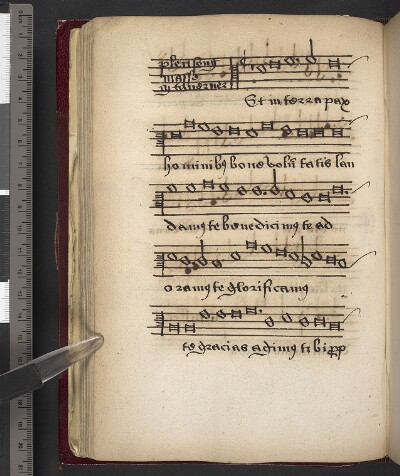 playn song
masse
m taverner
Et in terra pax
hominibus bone volu tatis lau
damus te benedicimus te ad
oramus te glorificamus
te gracias agimus tibi pp